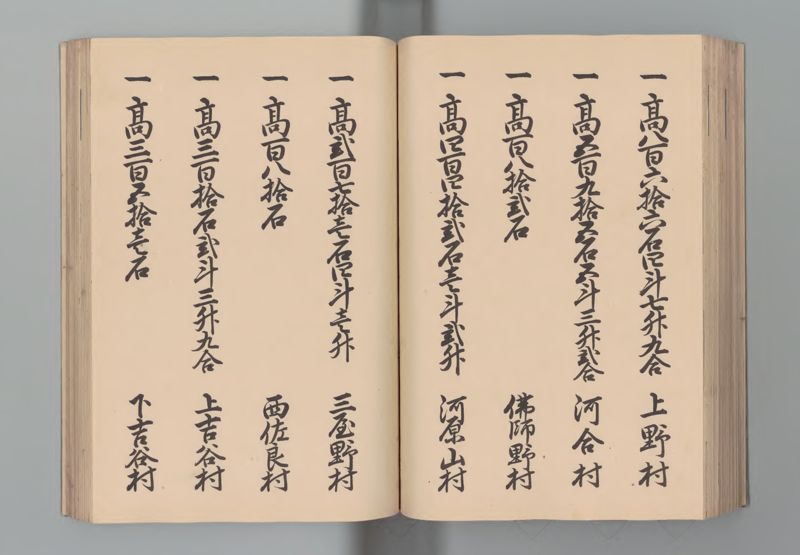 一 高八百六拾六石四斗七升九合 上野村
一 高五百九拾五石五斗三升弐合 河合村
一 高百八拾弐石 佛師野村
一 高四百四拾弐石壱斗弐升 河原山村
一 高弐百七拾壱石四斗壱升 三屋野村
一 高百八拾石 西佐良村
一 高三百拾石弐斗三升九合 上吉谷村
一 高三百五拾壱石 下吉谷村